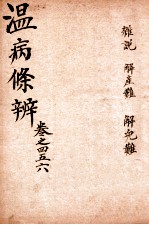 雜説 解産難 解兒難
温病條辨
卷之四五六